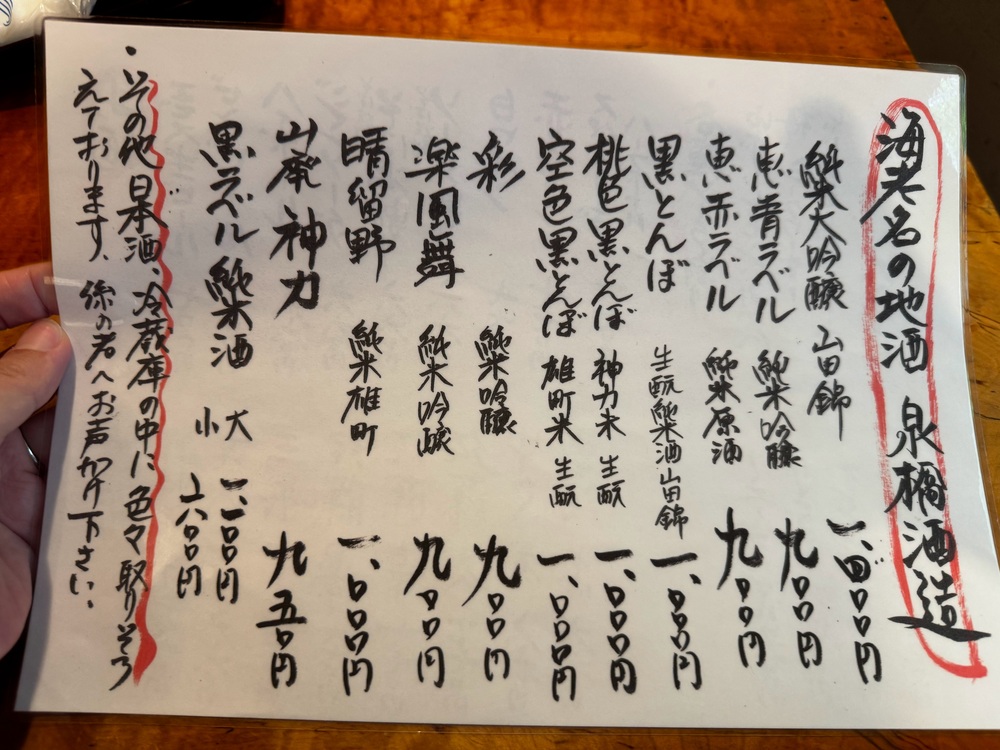 海老名の地酒 泉橋酒造
純米大吟醸 山田錦 一、四〇〇円
恵青ラベル 純米吟醸 九〇〇円
恵赤ラベル 純米原酒 九〇〇円
黒とんぼ 生酛純米酒山田錦 一、〇〇〇円
桃色黒とんぼ 神力米 生酛 一、〇〇〇円
空色黒とんぼ 雄町米 生酛 一、〇〇〇円
彩 純米吟醸 九〇〇円
楽風舞 純米吟醸 九〇〇円
晴留野 純米雄町 一、〇〇〇円
山廃 神力 九五〇円
黒ラベル 純米酒 大 一、一〇〇円
小 六〇〇円
・その他日本酒、冷蔵庫の中に色々取りそろ
えております。係の者へお声かけ下さい。